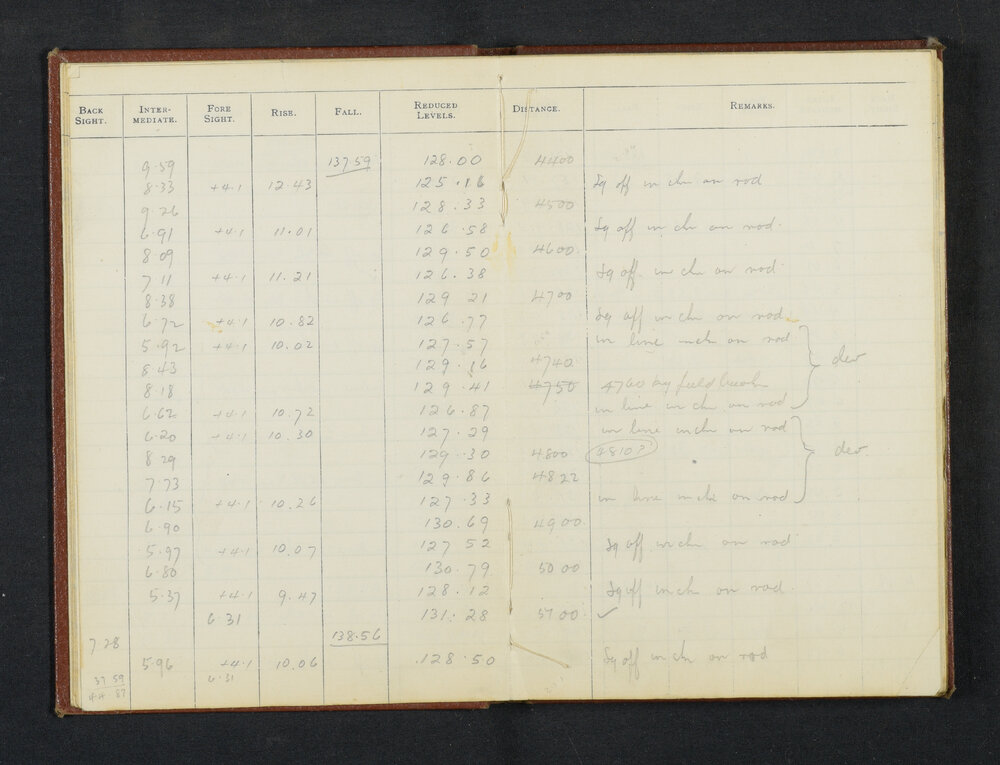 BACK SIGHT. INTER-MEDIATE. FORE SIGHT. RISE. FALL. REDUCED LEVELS. DISTANCE. REMARKS.
9.59 137.59 128.00 4400
8.33 +4.1 12.43 125.16 Sq off in ch on rod
9.26 128.33 4500
6.91 +4.1 11.01 126.58 Sq off in ch on rod
8.09 129.50 4600
7.11 +4.1 11.21 126.38 Sq off in ch on rod
8.38 129 21 4700
6.72 +4.1 10.82 126.77 Sq off in ch on rod
5.92 +4.1 10.02 127.57 in line in ch on rod
8.43 129.16 4740 dev
8.18 129.41 4750 4760 by field book
6.62 +4.1 10.72 126.87 in line in ch on rod
6.20 +4.1 10.30 127.29 in line in ch on rod
8 29 129.30 4800 4810?? dev
7.73 129.86 4822
6.15 +4.1 10.26 127.33 in line in ch on rod
6.90 130.69 4900
5.97 +4.1 10.07 127 52 Sq off in ch on rod
6.80 130.79 5000
5.37 +4.1 9.47 128.12 Sq off in ch on rod
6 31 131.28 5700 ✓
7.28 138.56
5.96 +4.1 10.06 128.50 Sq off in ch on rod
37 59 6.31
44 87